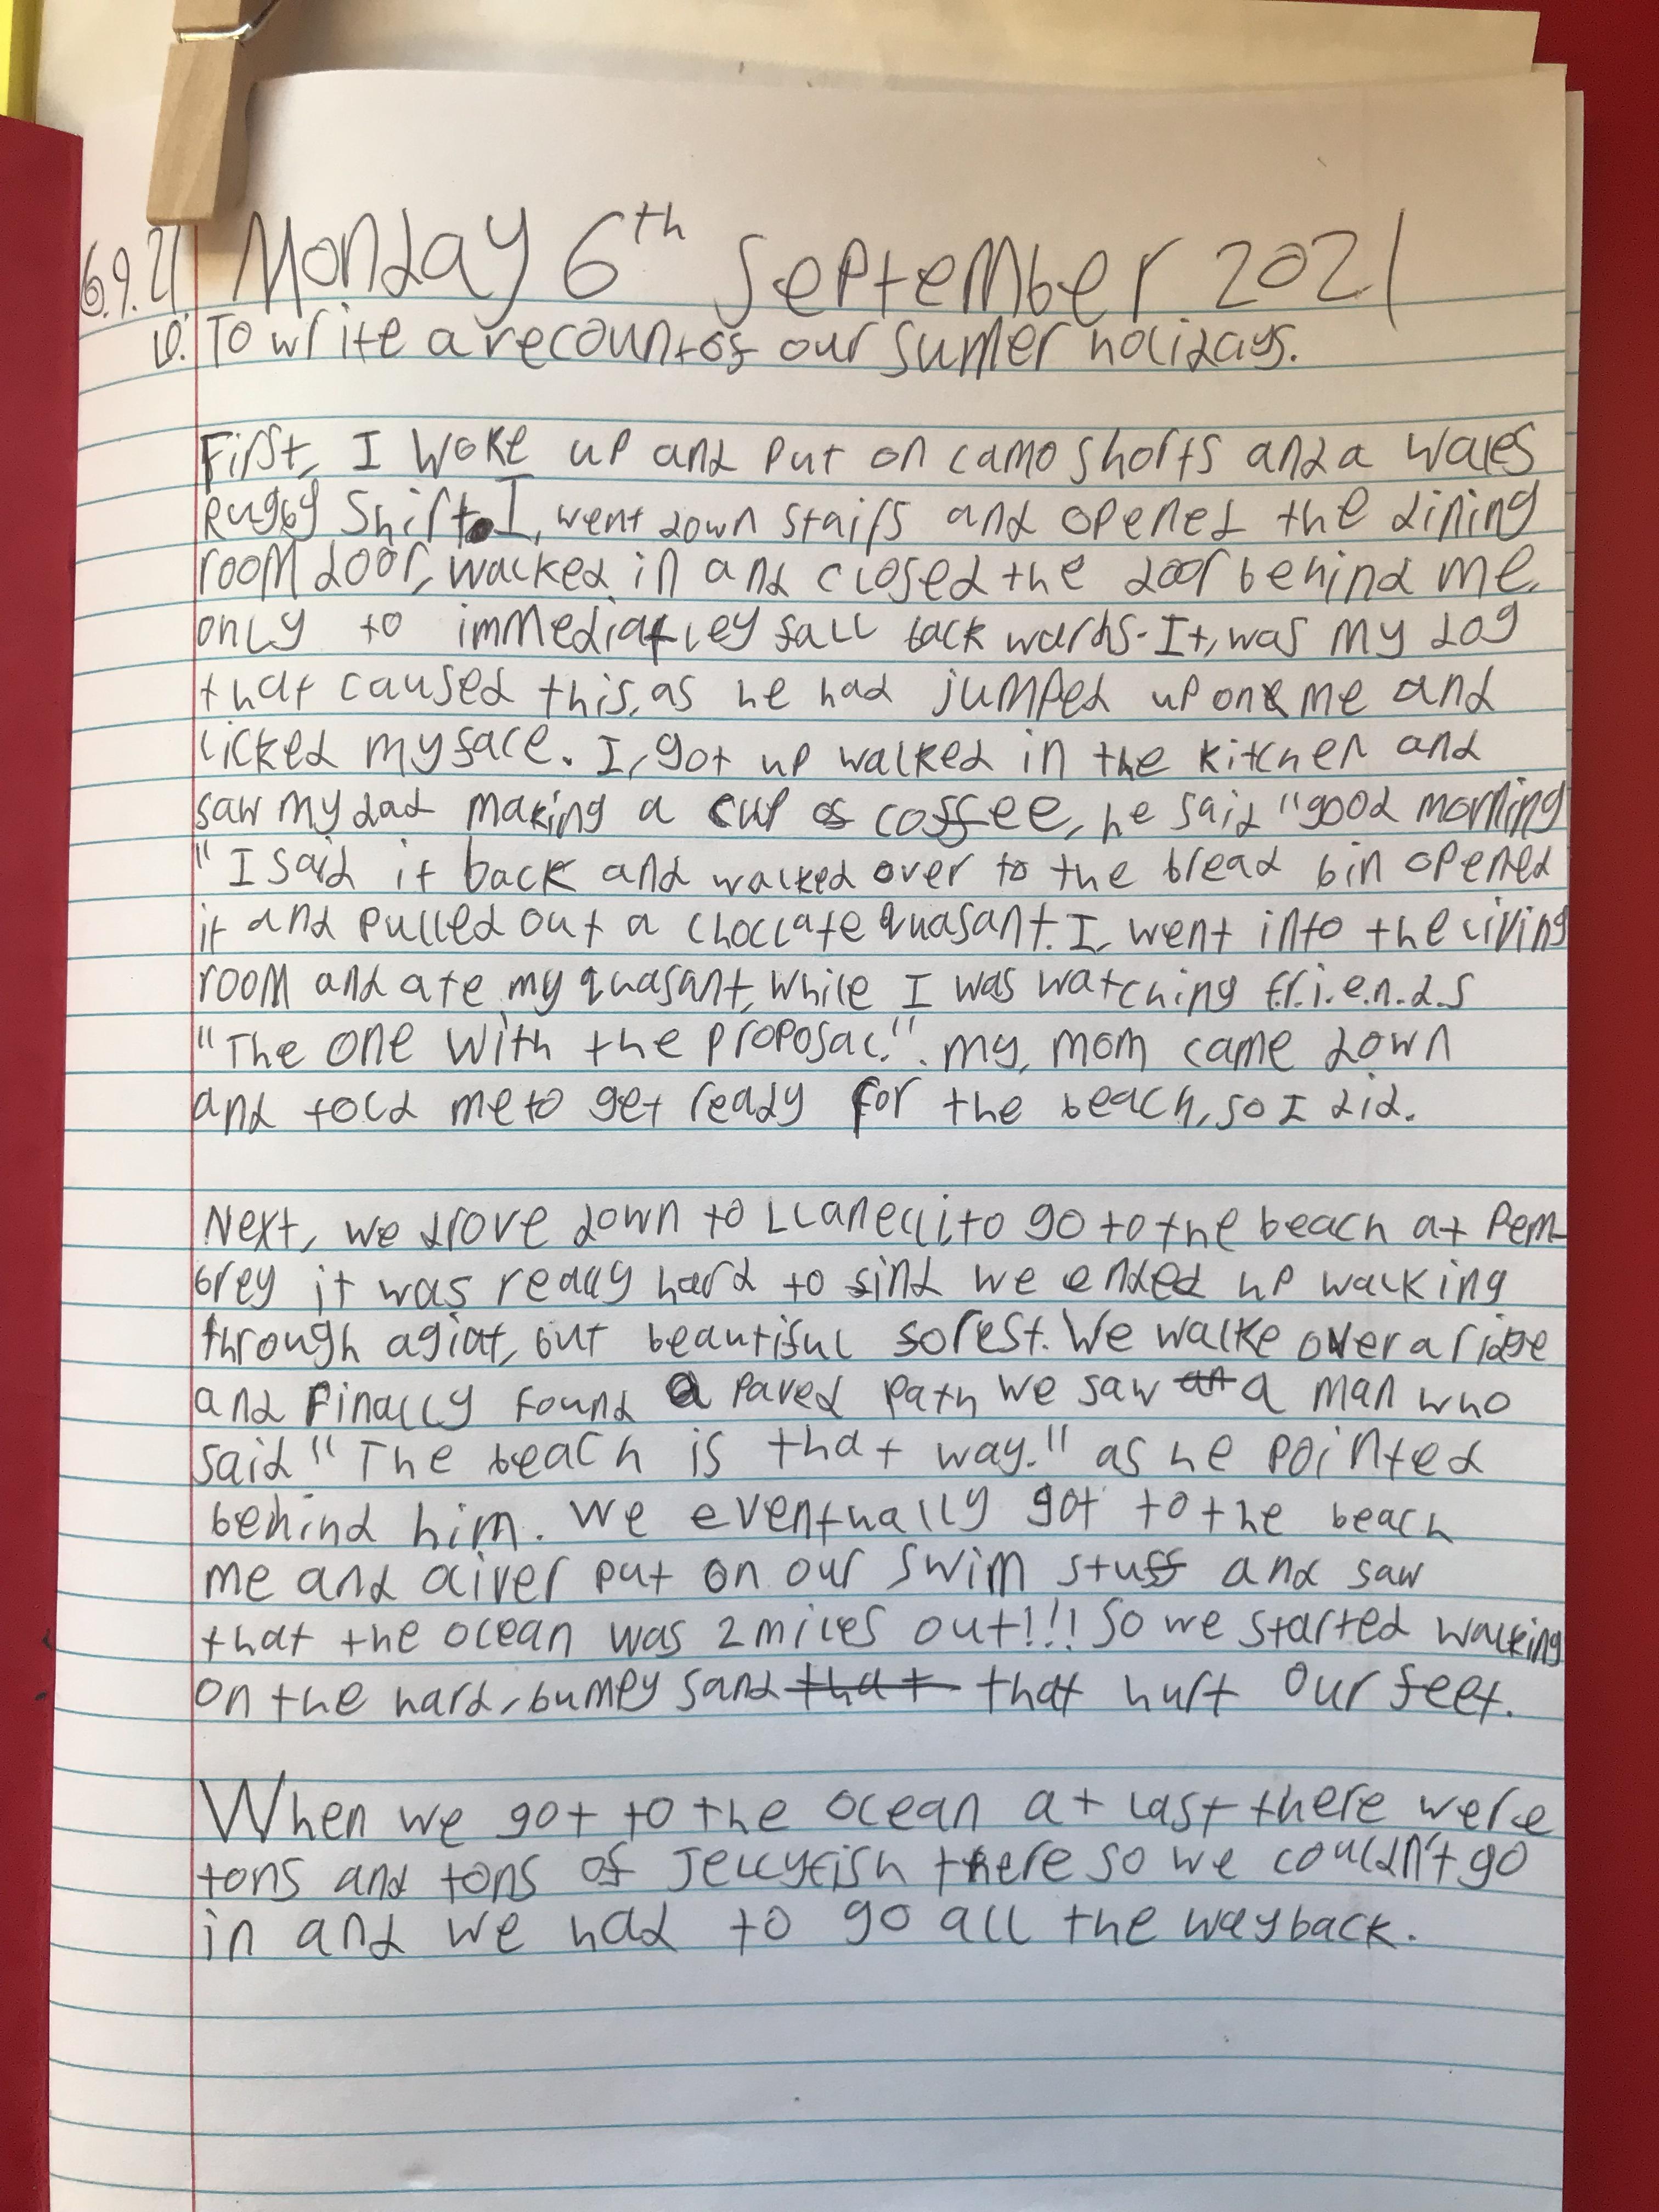 6.9.21 Monday 6th September 2021
LO: To write a recount of our sumer holidays.
First, I woke up and put on camo shorts and a Wales
Rugby Shirt. I, went down stairs and opened the dining
room door, walked in and closed the door behind me,
only to immediatley fall back wards. It, was my dog
that caused this, as he had jumped up on me and
licked my face. I, got up walked in the kitchen and
saw my dad making a cup of coffee, he said "good morning
" I said it back and walked over to the bread bin opened
it and pulled out a choclate quasant. I, went into the living
room and ate my quasant, while I was watching f.r.i.e.n.d.s
"The one with the proposal.". my, mom came down
and told me to get ready for the beach, so I did.
Next, we drove down to Llanelli, to go to the beach at Pem-
brey it was really hard to find we ended up walking
through a giat, but beautiful forest. We walke over a ridge
and finally found a paved path we saw an a man who
said "The beach is that way." as he pointed
behind him. We eventually got to the beach
me and oliver put on our swim stuff and saw
that the ocean was 2 miles out!!! So we started walking
on the hard, bumpy sand that that hurt our feet.
When we got to the ocean at last there were
tons and tons of Jellyfish there so we couldn't go
in and we had to go all the way back.